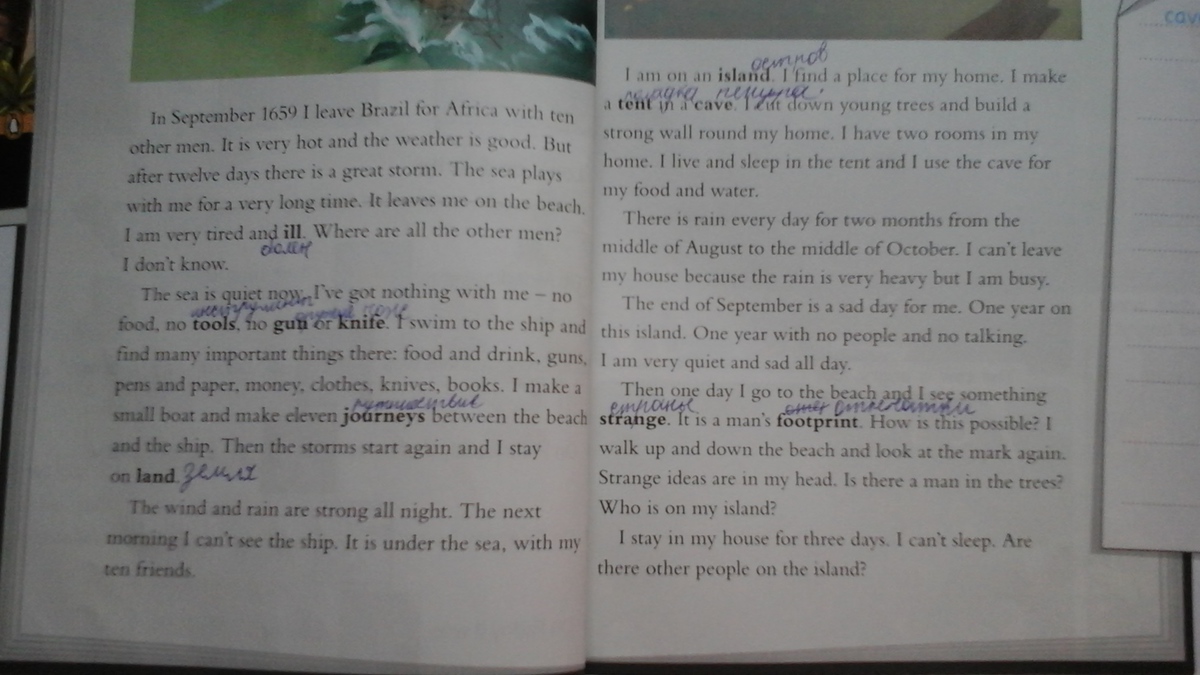 In September 1659 I leave Brazil for Africa with ten
other men. It is very hot and the weather is good. But
after twelve days there is a great storm. The sea plays
with me for a very long time. It leaves me on the beach.
I am very tired and ill. Where are all the other men?
болен
I don't know.
The sea is quiet now. I've got nothing with me – no
инструмент
food, no tools, no gun or knife. I swim to the ship and
find many important things there: food and drink, guns,
pens and paper, money, clothes, knives, books. I make a
путешествие
small boat and make eleven journeys between the beach
and the ship. Then the storms start again and I stay
on land. земля
The wind and rain are strong all night. The next
morning I can't see the ship. It is under the sea, with my
ten friends.
остров
I am on an island. I find a place for my home. I make
пещера
a tent in a cave. I cut down young trees and build a
strong wall round my home. I have two rooms in my
home. I live and sleep in the tent and I use the cave for
my food and water.
There is rain every day for two months from the
middle of August to the middle of October. I can't leave
my house because the rain is very heavy but I am busy.
The end of September is a sad day for me. One year on
this island. One year with no people and no talking.
I am very quiet and sad all day.
Then one day I go to the beach and I see something
отпечатки
strange. It is a man's footprint. How is this possible? I
walk up and down the beach and look at the mark again.
Strange ideas are in my head. Is there a man in the trees?
Who is on my island?
I stay in my house for three days. I can't sleep. Are
there other people on the island?